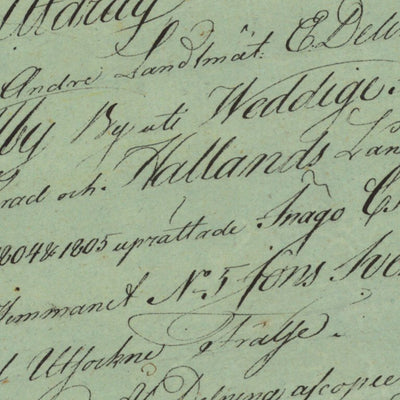 Utdrag
Andre Landtmät. E. Dell
by By uti Weddige
rad och. Hallands Län
1804 & 1805 uprättade
Hemmanet No. 5 Jöns Sve
Utsockne Fralse.
Delning afcopie